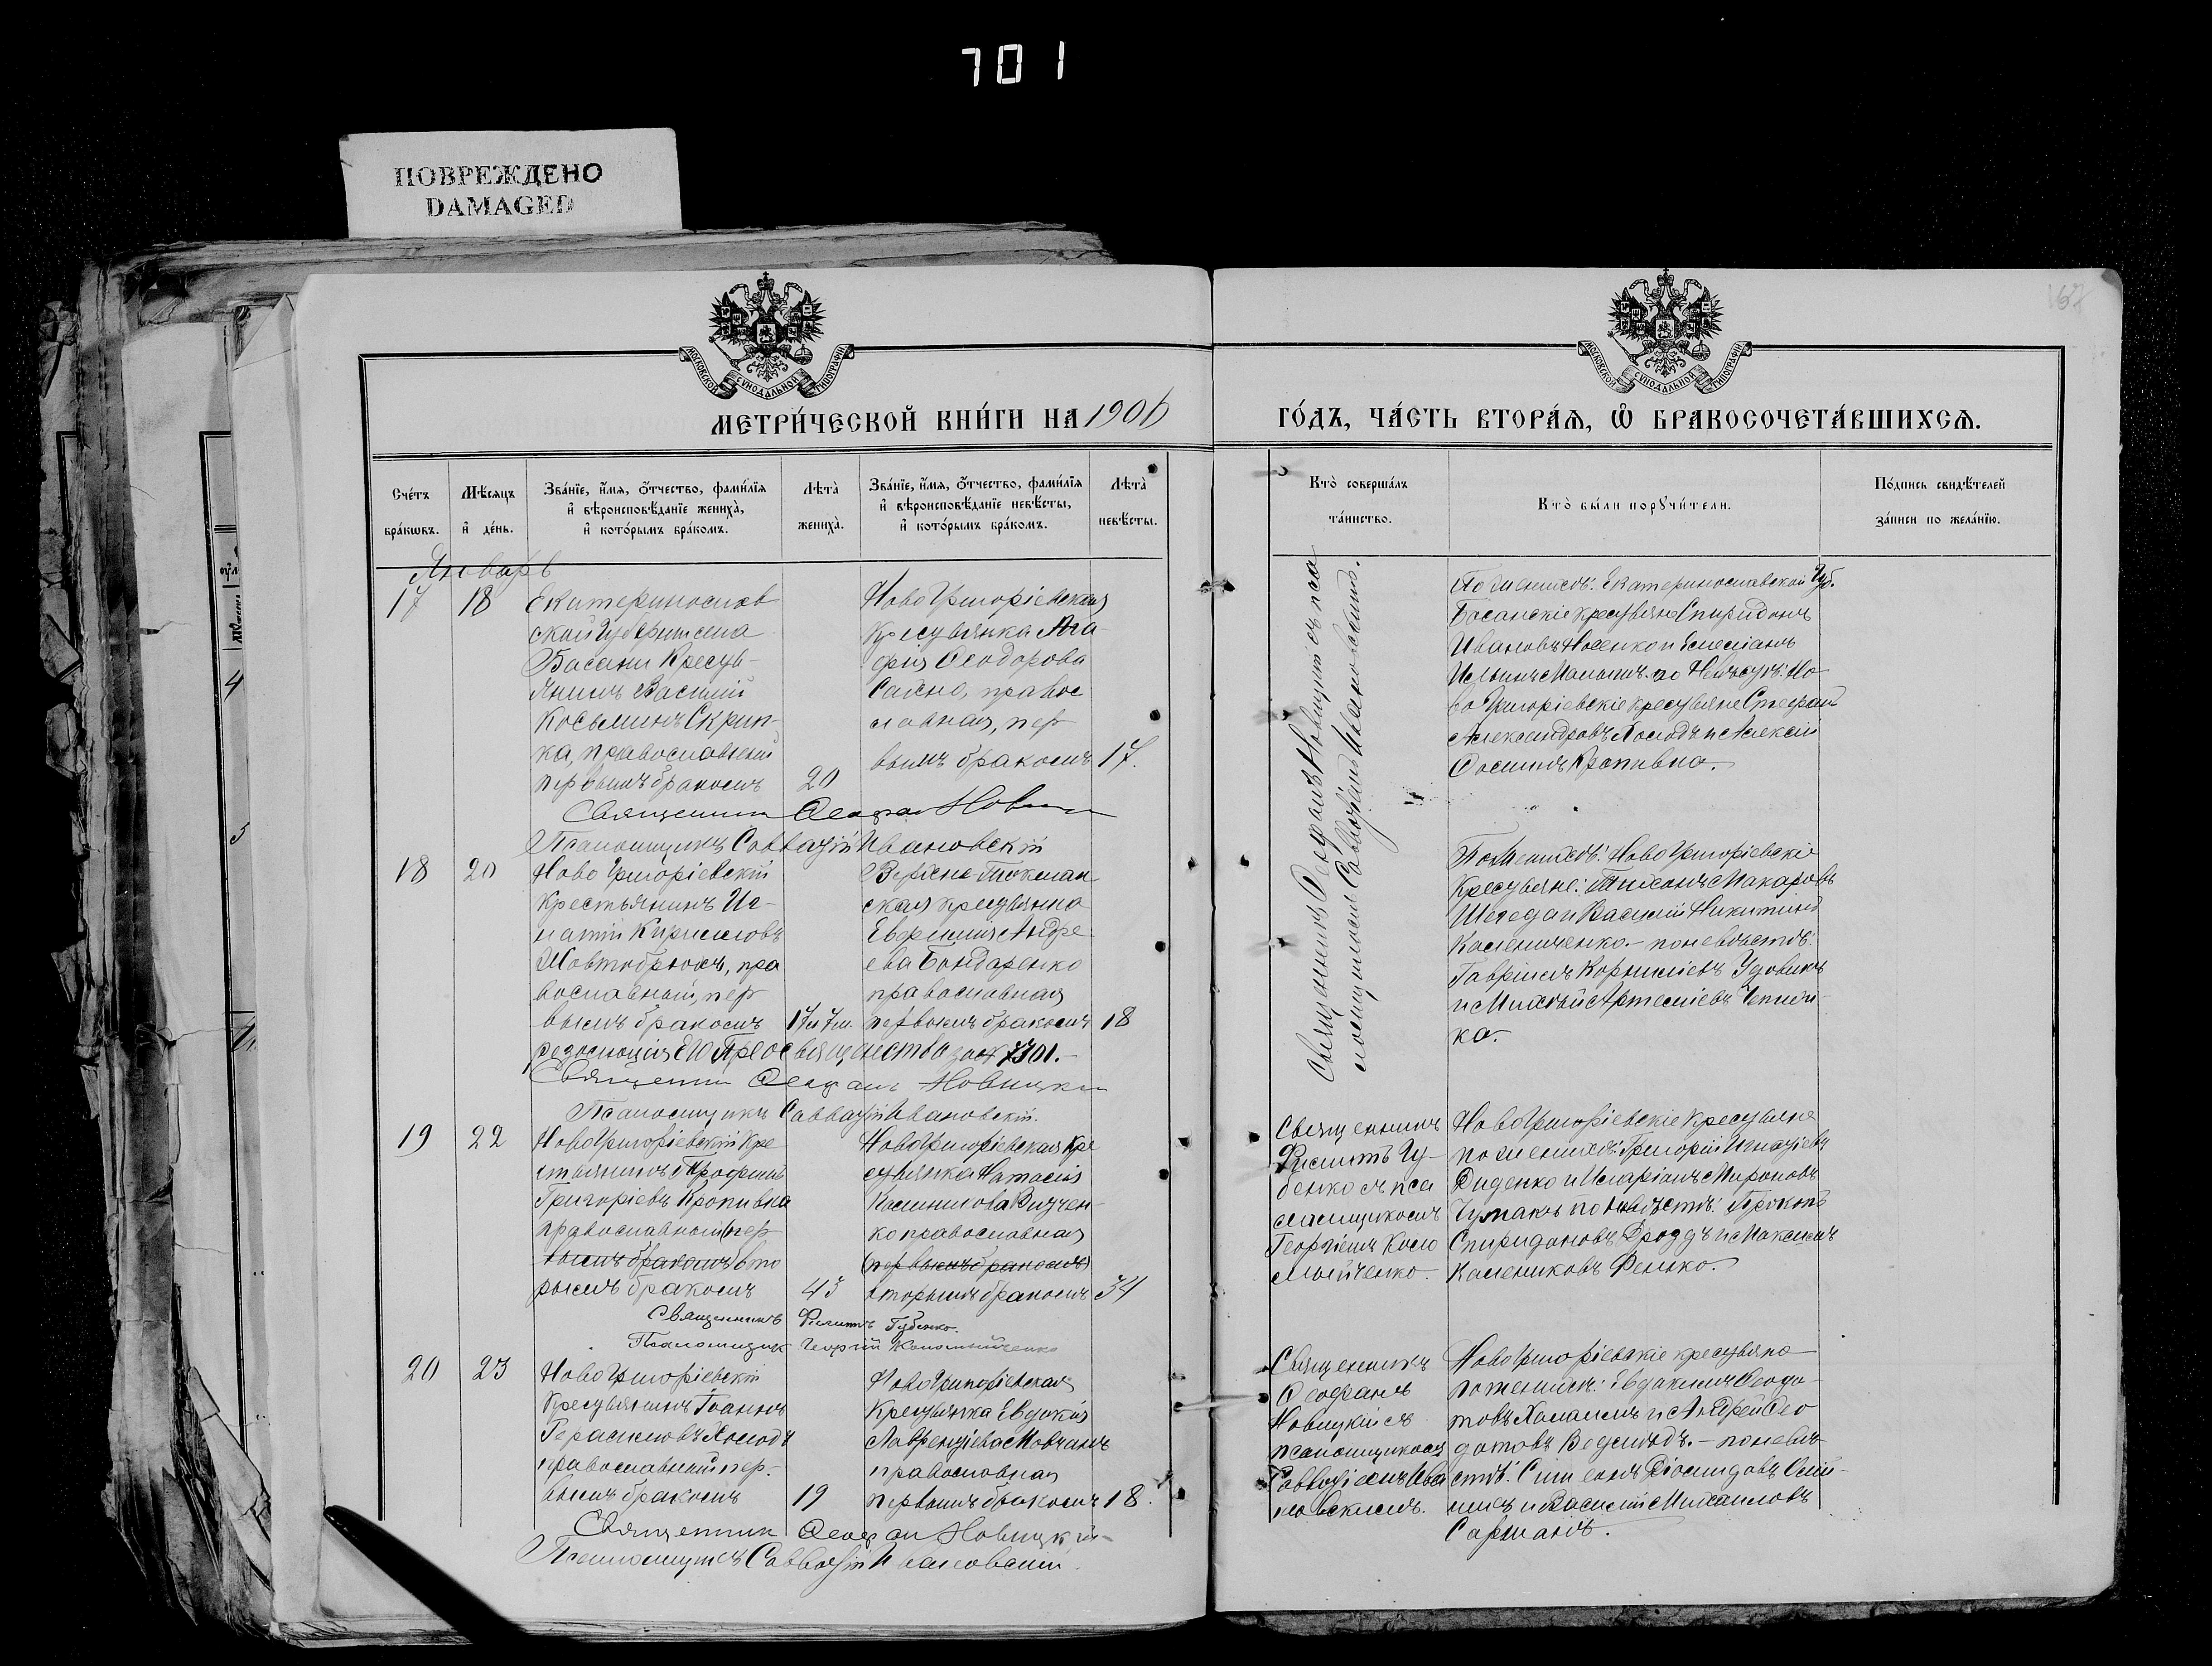 701
ПОВРЕЖДЕНО
DAMAGED
МОСКОВСКОЙ СѴНОДАЛЬНОЙ ТИПОГРАФІИ
МОСКОВСКОЙ СѴНОДАЛЬНОЙ ТИПОГРАФІИ
МЕТРИ́ЧЕСКОЙ КНИ́ГИ НА 1906
ГО́ДЪ, ЧА́СТЬ ВТОРА́Ѧ, Ѡ҆ БРАКОСОЧЕТА́ВШИХСѦ.
Сче́тъ
бра́кωвъ.
Мѣ́сѧцъ
и҆ де́нь.
Зва́нїе, и҆́мѧ, ѻ҆́тчество, фами́лїѧ
и҆ вѣроисповѣ́данїе жениха̀,
и҆ кото́рымъ бра́комъ.
Лѣта̀
жениха̀.
Зва́нїе, и҆́мѧ, ѻ҆́тчество, фами́лїѧ
и҆ вѣроисповѣ́данїе невѣ́сты,
и҆ кото́рымъ бра́комъ.
Лѣта̀
невѣ́сты.
Кто̀ соверша́лъ
та́инство.
Кто̀ бы́ли порꙋчи́тели.
По́дпись свидѣ́телей
за́писи по жела́нїю.
Январь
17
18
Екатеринослав
ской Губерніи села
Басани Кресть-
янинъ Василій
Косьминъ Скрип-
ка, православный
первымъ бракомъ
20
Ново Григоріевская
Крестьянка Ага-
фія Ѳеодорова
православ
ная, пер
вымъ бракомъ
17.
Священникъ Ѳеофанъ Новицкій съ пса
ломщикомъ Савватіемъ Ивановскимъ.
По женихѣ: Екатеринославской Губ.
Басанскіе крестьяне Спиридонъ
Ивановъ Носенко и Емеліанъ
Ильинъ по невѣстѣ: Но-
во Григоріевскіе крестьяне Стефанъ
Александровъ Холодъ и Алексій
Кропивка.
Священникъ Ѳеофанъ Новицкій
Псаломщикъ Савватій Ивановскій
18
20
Ново Григоріевскій
Крестьянинъ Иг-
натій Кирилловъ
Жовтобрюхъ, пра
вославный, пер
вымъ бракомъ
17 и 7 м.
Верхне-Токмак
ская крестьянка
Евфимія Андре
ева Бондаренко
православная
первымъ бракомъ
18
резолюція Его Преосвященства за № 7301.-
По женихѣ: Ново Григоріевскіе
Крестьяне: Макаровъ
и Василій Никитинъ
Калениченко.- по невѣстѣ:
Гавріилъ Корниліевъ Удовикъ
и Михаилъ Артеміевъ
ка.
Священникъ Ѳеофанъ Новицкій
Псаломщикъ Савватій Ивановскій.
19
22
Ново Григоріевскій Кре
стьянинъ Трофимъ
Григоріевъ Кропивка
православный (пер
вымъ бракомъ) вто
рымъ бракомъ
43
Ново Григоріевская Кре
стьянка Наталія
православная
(первымъ бракомъ)
вторымъ бракомъ
34
Священникъ
Филиппъ Гу-
бенко съ пса
ломщикомъ
Георгіемъ Коло
мыйченко.
Ново Григоріевскіе Крестьяне
по женихѣ: Григорій Игнатіевъ
Диденко и Иларіонъ Мироновъ
Чумакъ по невѣстѣ: Прокопъ
Спиридоновъ Дроздъ и Максимъ
Калениковъ Фенько.
Священникъ Филиппъ Губенко.
Псаломщикъ Георгій Коломыйченко
20
23
Ново Григоріевскій
Крестьянинъ Іоаннъ
Герасимовъ Холодъ
православный пер-
вымъ бракомъ
19
Ново Григоріевская
Крестьянка Евдокія
Лаврентіева Мовчанъ
православная
первымъ бракомъ
18.
Священникъ
Ѳеофанъ
Новицкій съ
псаломщикомъ
Савватіемъ Ива
новскимъ.
Ново Григоріевскіе крестьяне
по женихѣ: Евдокимъ Ѳеодо-
товъ и Андрей Ѳео
дотовъ Ведмѣдь.- по невѣ-
стѣ: Симеонъ Діомидовъ
и Василій Михаиловъ
Священникъ Ѳеофанъ Новицкій
Псаломщикъ Савватій Ивановскій.